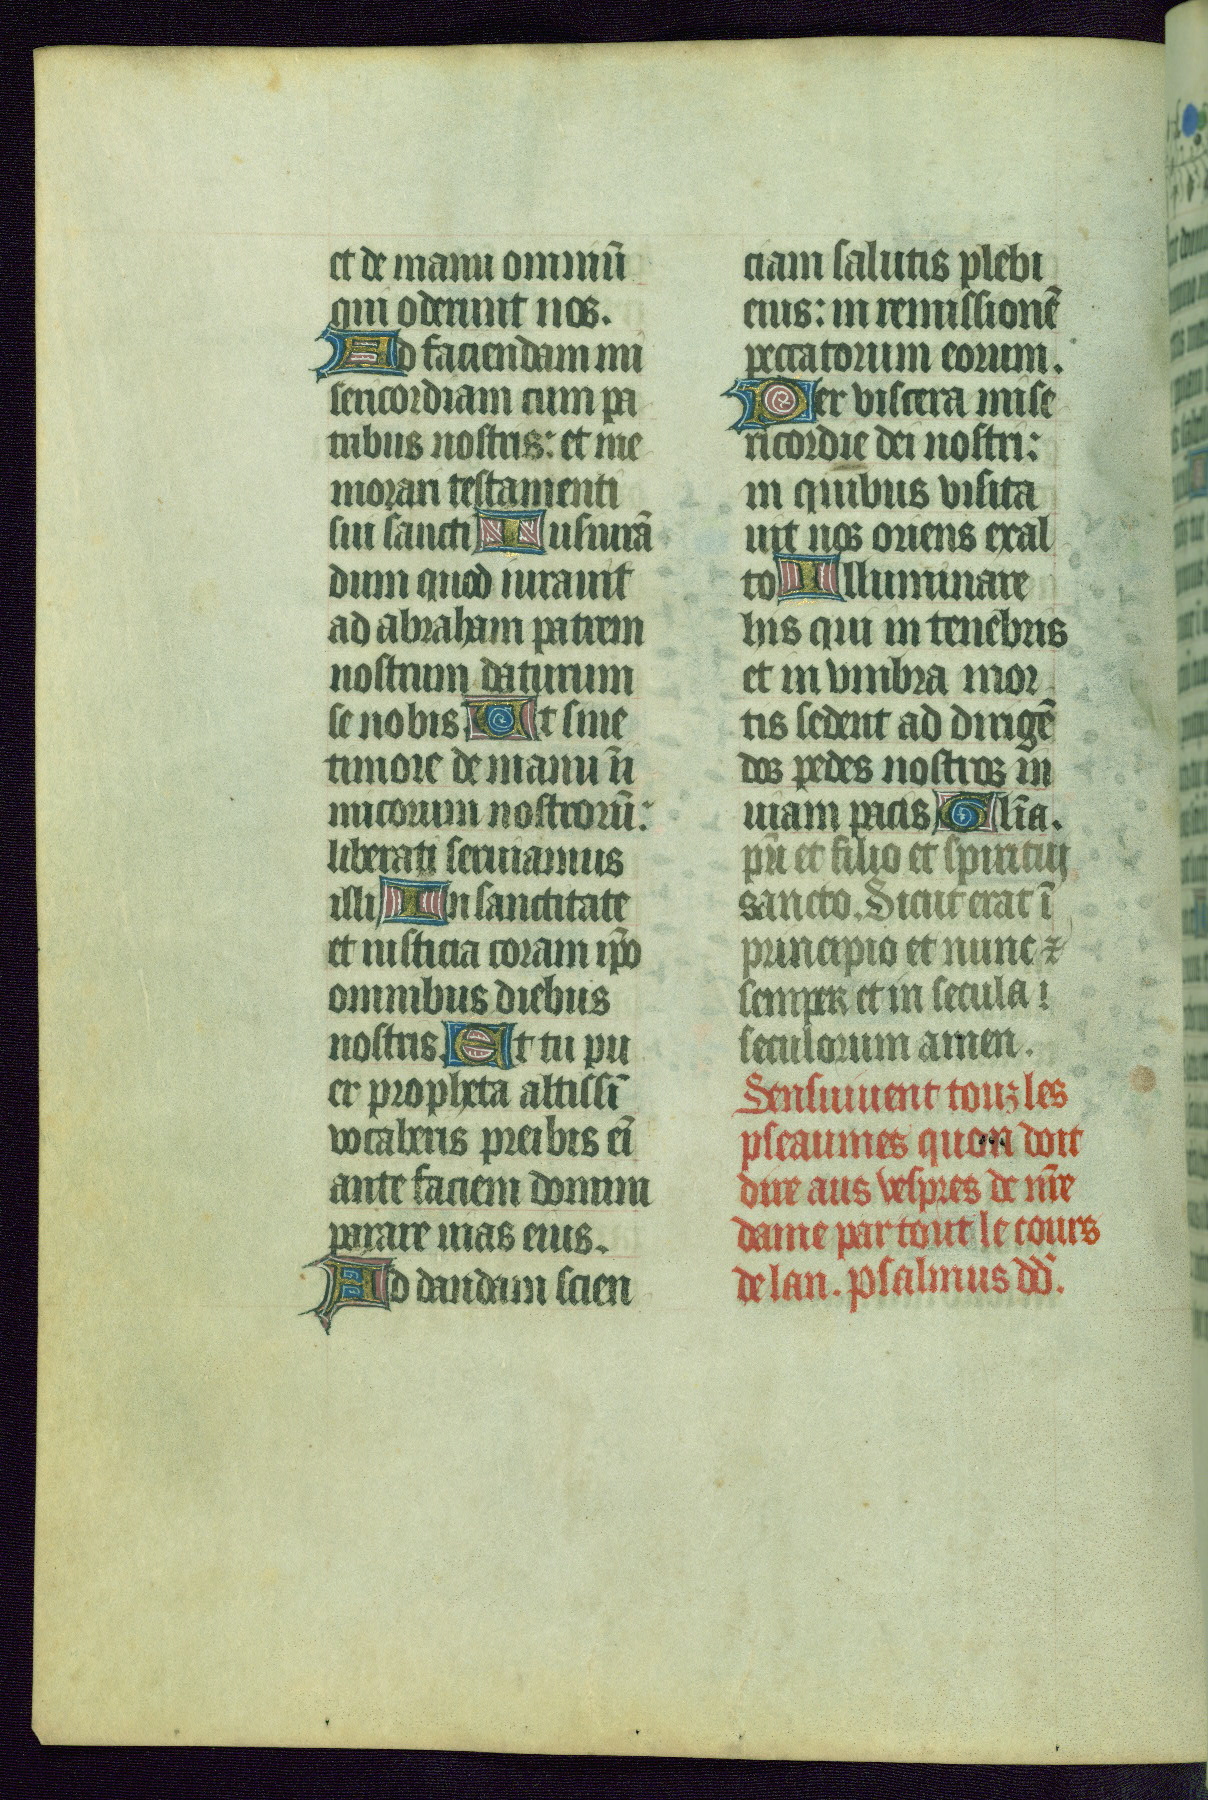 et de manu omniū
qui oderunt nos.
Ad faciendam mi
sericordiam cum pa
tribus nostris: et me
morari testamenti
sui sancti Iusiurā
dum quod iurauit
ad abraham patrem
nostrum daturum
se nobis Ut sine
timore de manu īi
micorum nostrorū:
liberati seruiamus
illi In sanctitate
et iusticia coram ip̄o
omnibus diebus
nostris Et tu pu
er propheta altissī
vocaberis preibis eī
ante faciem domini
parare uias eius.
Ad dandam scien
ciam salutis plebi
eius: in remissionē
peccatorum eorum.
Per viscera mise
ricordie dei nostri:
in quibus visita
uit nos oriens exal
to Illuminare
his qui in tenebris
et in vmbra mor
tis sedent ad dirigē
dos pedes nostros in
uiam pacis Gl̄ia.
pr̄i et filio et spiritui
sancto. Sicut erat ī
principio et nunc ⁊
semper et in secula !
seculorum amen.
Sensuiuent touz les
pseaumes quon doit
dire aus vespres de nr̄e
dame par tout le cours
de lan. psalmus dd̄.